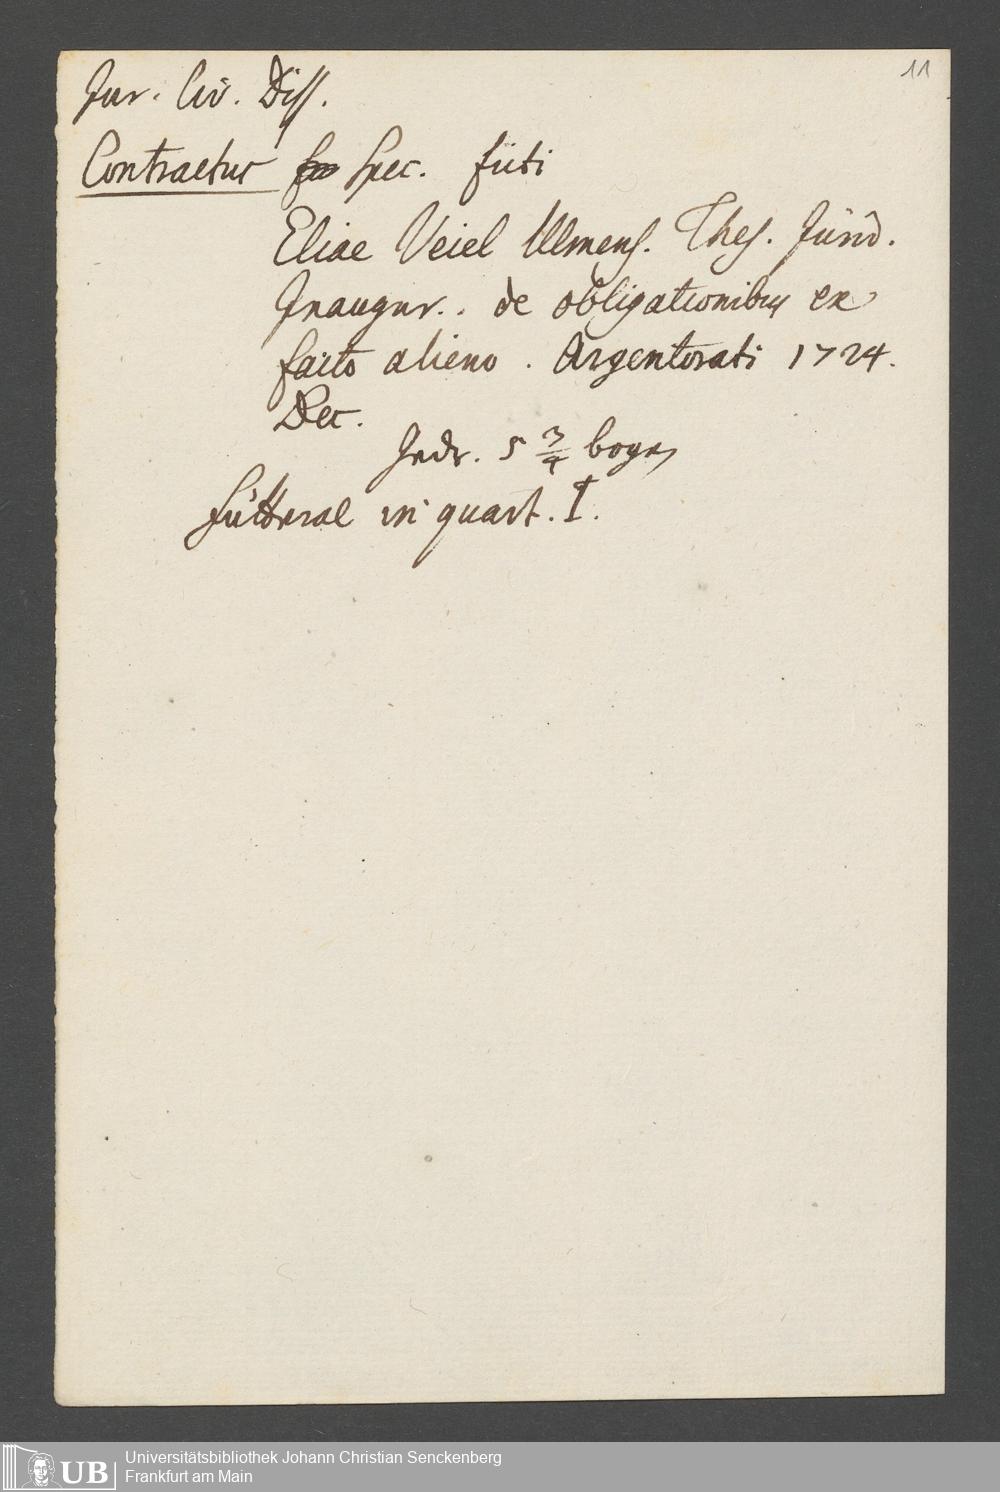 11
Jur. Civ. Diss.
Contractus Spec. ficti
Eliae Veiel Ulmens. Thes. Jurid.
Inaugur. de obligationibus ex
facto alieno. Argentorati 1724.
Dec.
5 3/4 bogen
Futteral in quart. I.
Universitätsbibliothek Johann Christian Senckenberg
Frankfurt am Main
UB